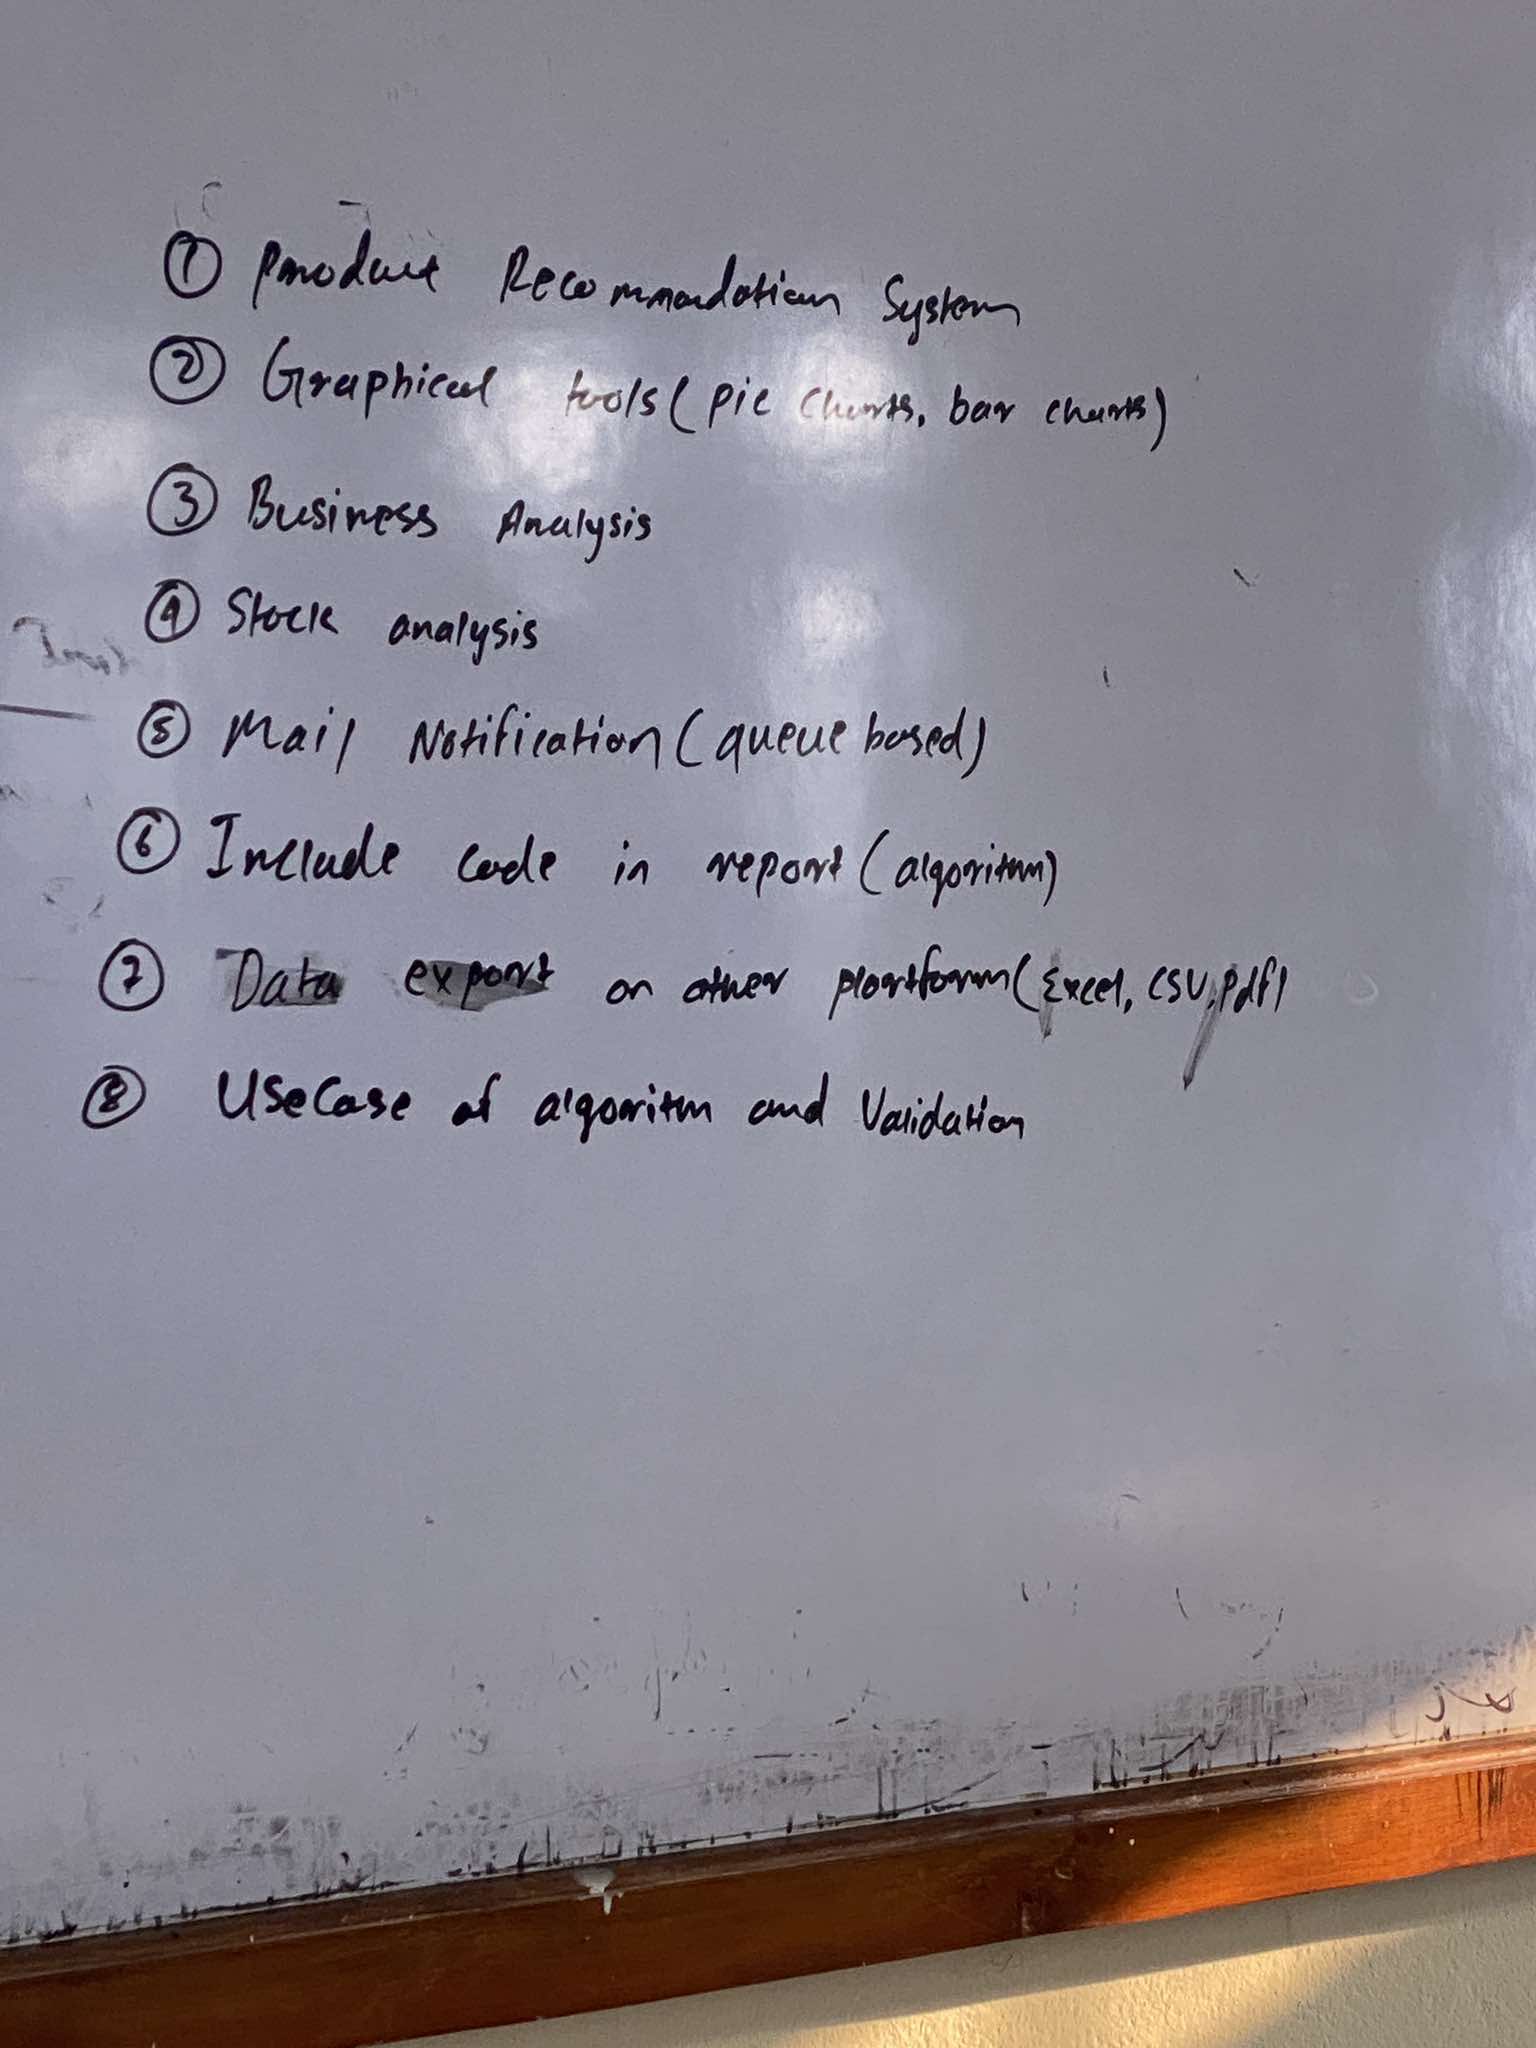 ① Product Recommandation System
② Graphical tools (pie charts, bar charts)
③ Business Analysis
④ Stock analysis
⑤ Mail Notification (queue based)
⑥ Include code in report (algoritm)
⑦ Data export on other plartform (Excel, CSV, Pdf)
⑧ UseCase of algoritm and Validation